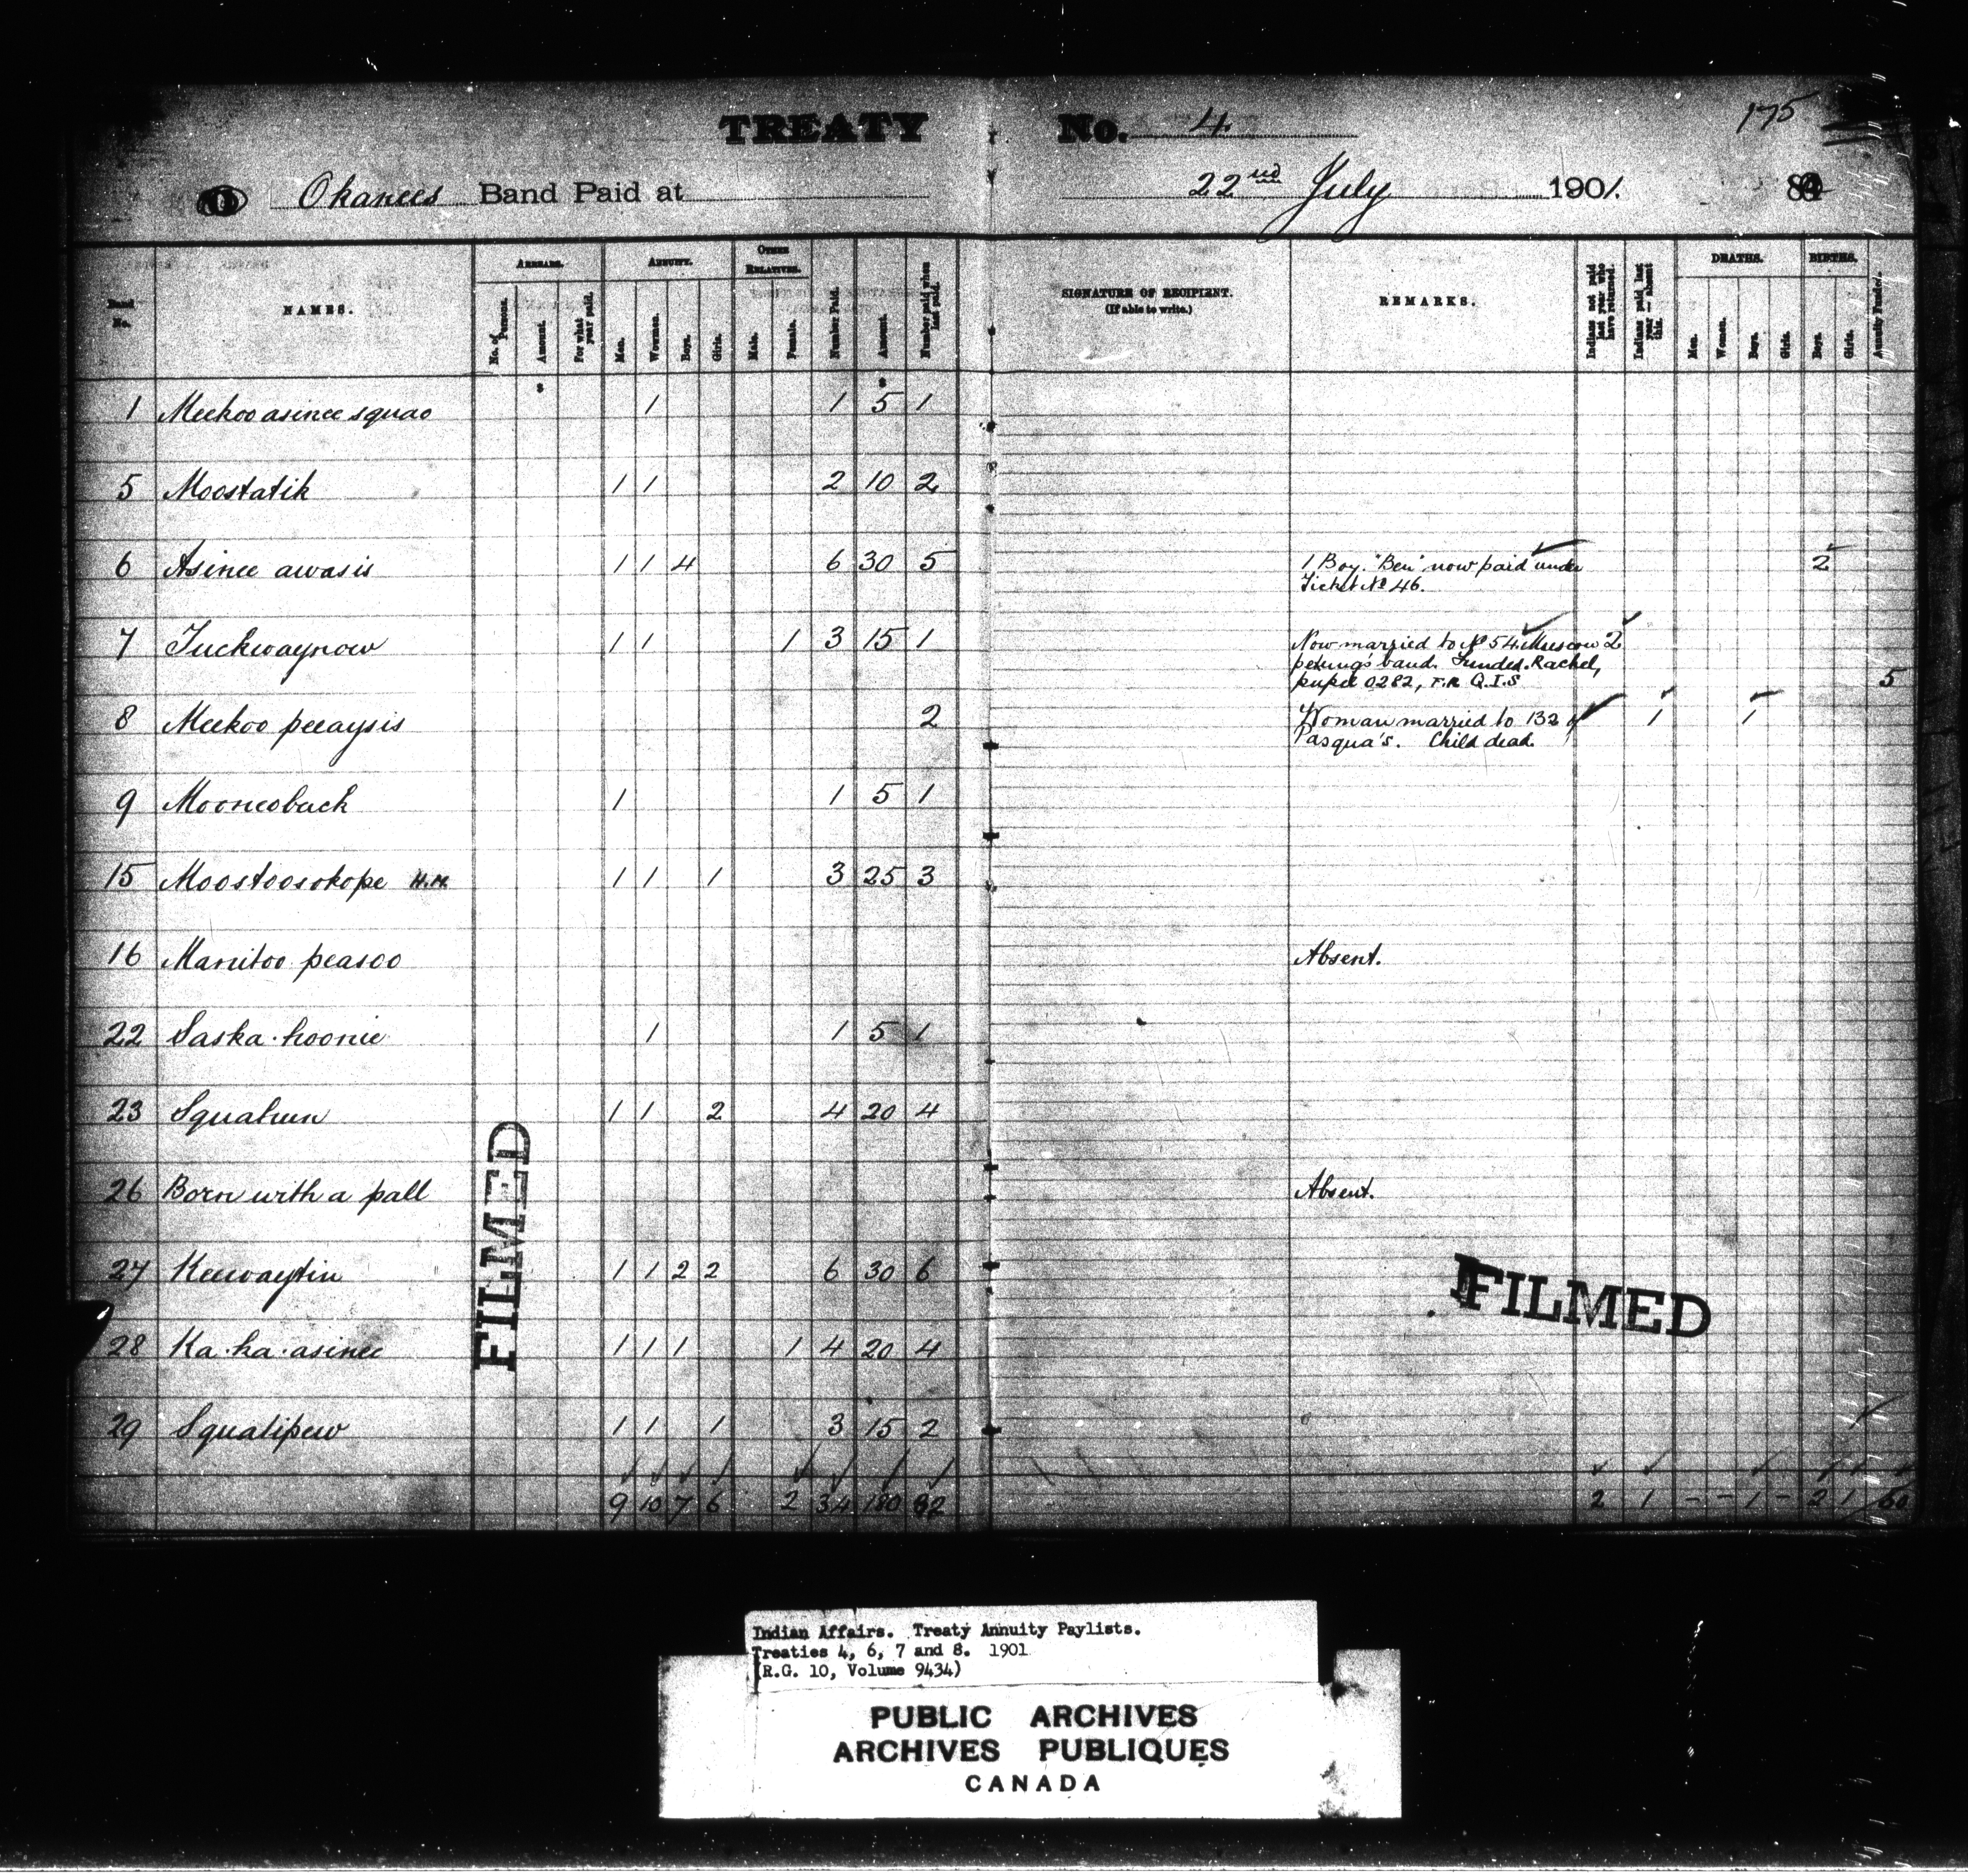 TREATY No. 4. 175
Okanees Band Paid at 22nd July 1901.
Band No. NAMES. ARREARS. No. of Persons. Amount. For what year paid. ANNUITY. Men. Women. Boys. Girls. OTHER RELATIVES. Male. Female. Number Paid. Amount. Number paid when last paid. SIGNATURE OF RECIPIENT. (If able to write.) REMARKS. Indians not paid last year who have returned. Indians paid last year — absent this. DEATHS. Men. Women. Boys. Girls. BIRTHS. Boys. Girls. Annuity Funded.
1 Meekoo asinee squao 1 1 5 1
5 Moostatik 1 1 2 10 2
6 Asinee awasis 1 1 4 6 30 5 1 Boy. "Ben" now paid under 2
Ticket No 46.
7 Tuckwaynow 1 1 1 3 15 1 Now married to No 54 Muscow 2
petung's band. Funded. Rachel,
pupil 0282, F.R Q.I.S 5
8 Meekoo peeaysis 2 Woman married to 132 of 1 1
Pasqua's. Child dead.
9 Mooneoback 1 1 5 1
15 Moostoosokope H.M. 1 1 1 3 25 3
16 Manitoo peasoo Absent.
22 Saska-hoonie 1 1 5 1
23 Squatum 1 1 2 4 20 4
26 Born with a pall Absent.
27 Keewaytin 1 1 2 2 6 30 6
28 Ka-ka-asinee 1 1 1 1 4 20 4
29 Squatipew 1 1 1 3 15 2
9 10 7 6 2 34 180 32 2 1 - - 1 - 2 1
FILMED
FILMED
Indian Affairs. Treaty Annuity Paylists.
Treaties 4, 6, 7 and 8. 1901
(R.G. 10, Volume 9434)
PUBLIC ARCHIVES
ARCHIVES PUBLIQUES
CANADA